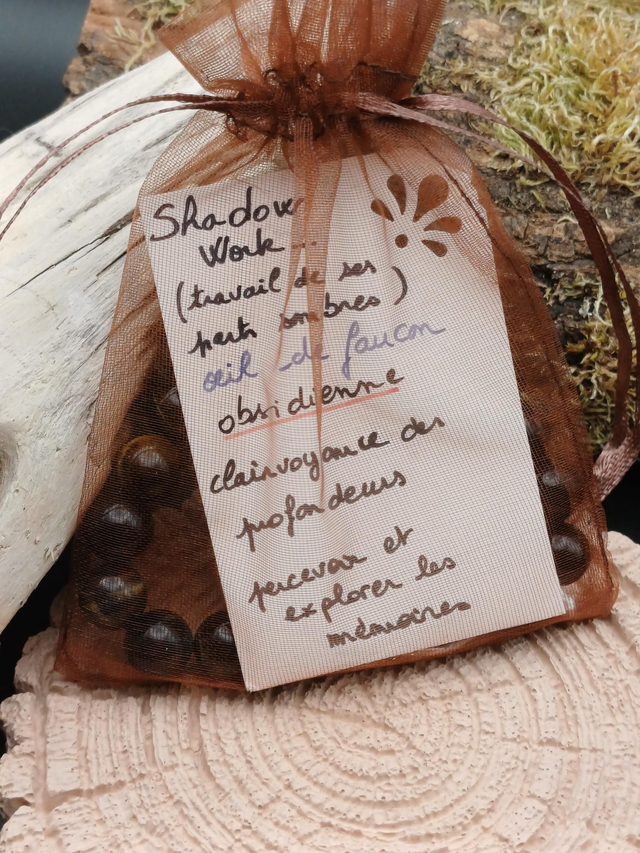 Shadow
Work...
(travail de ses
parts sombres)
œil de faucon
obsidienne
clairvoyance des
profondeurs
percevoir et
explorer les
mémoires